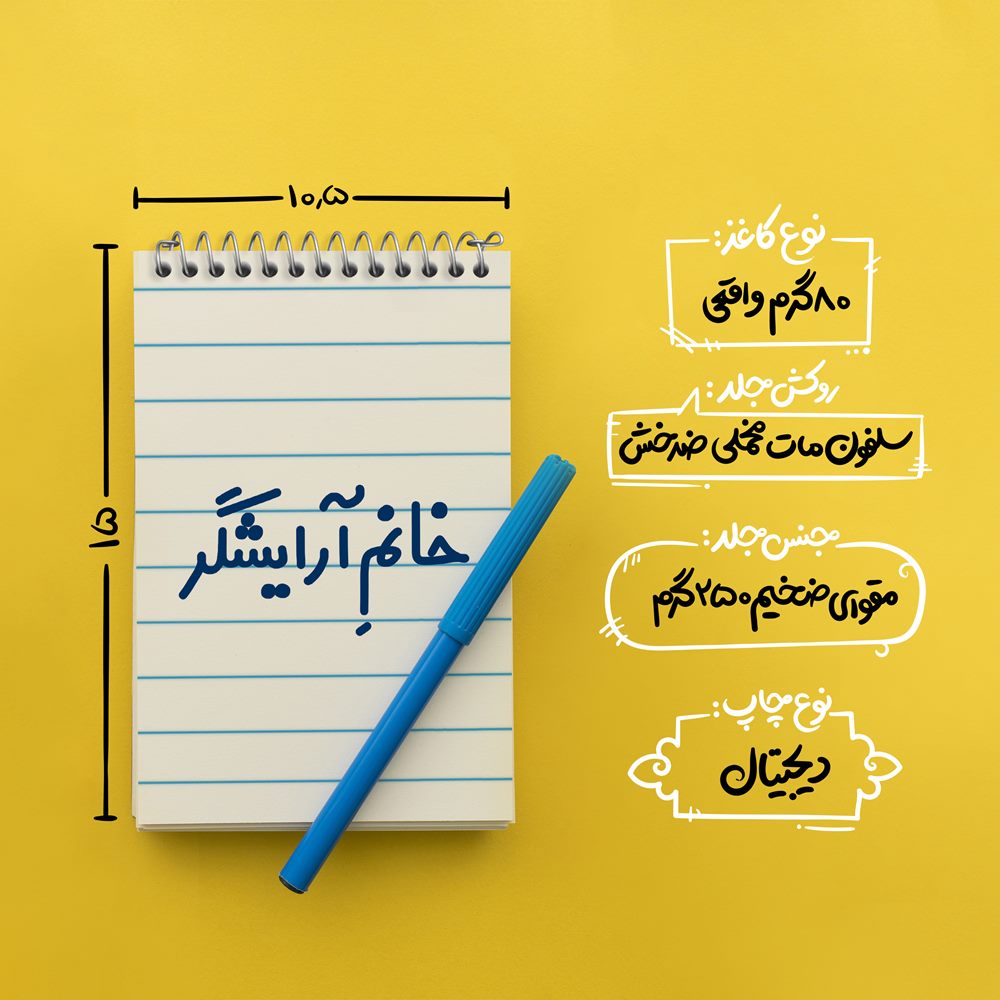 ۱۰٫۵
۱۵
خانمِ آرایشگر
نوع کاغذ:
۸۰گرم واقعی
روکش جلد:
سلفون مات مخملی ضدخش
جنس جلد:
مقوای ضخیم ۲۵۰گرم
نوع چاپ:
دیجیتال